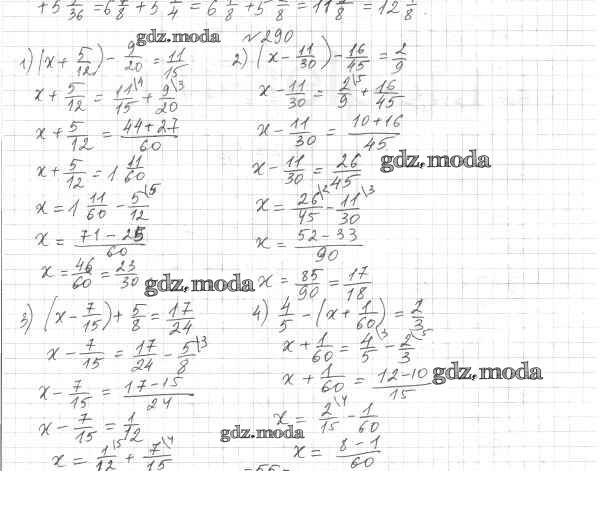 +5 5/36 = 6 7/8 + 5 1/4 = 6 7/8 + 5 2/8 = 11 9/8 = 12 1/8.
gdz.moda
№290
1) (x + 5/12) - 9/20 = 11/15
x + 5/12 = 11/15 \4 + 9/20 \3
x + 5/12 = 44+27/60
x + 5/12 = 1 11/60
x = 1 11/60 - 5/12 \5
x = 71-25/60
x = 46/60 = 23/30
gdz.moda
2) (x - 11/30) - 16/45 = 2/9
x - 11/30 = 2/9 \5 + 16/45
x - 11/30 = 10+16/45
gdz.moda
x - 11/30 = 26/45
x = 26/45 \2 - 11/30 \3
x = 52-33/90
x = 85/90 = 17/18
3) (x - 7/15) + 5/8 = 17/24
x - 7/15 = 17/24 - 5/8 \3
x - 7/15 = 17-15/24
x - 7/15 = 1/12
x = 1/12 \5 + 7/15 \4
4) 4/5 - (x + 1/60) = 2/3
x + 1/60 = 4/5 \3 - 2/3 \5
gdz.moda
x + 1/60 = 12-10/15
x = 2/15 \4 - 1/60
gdz.moda
x = 8-1/60